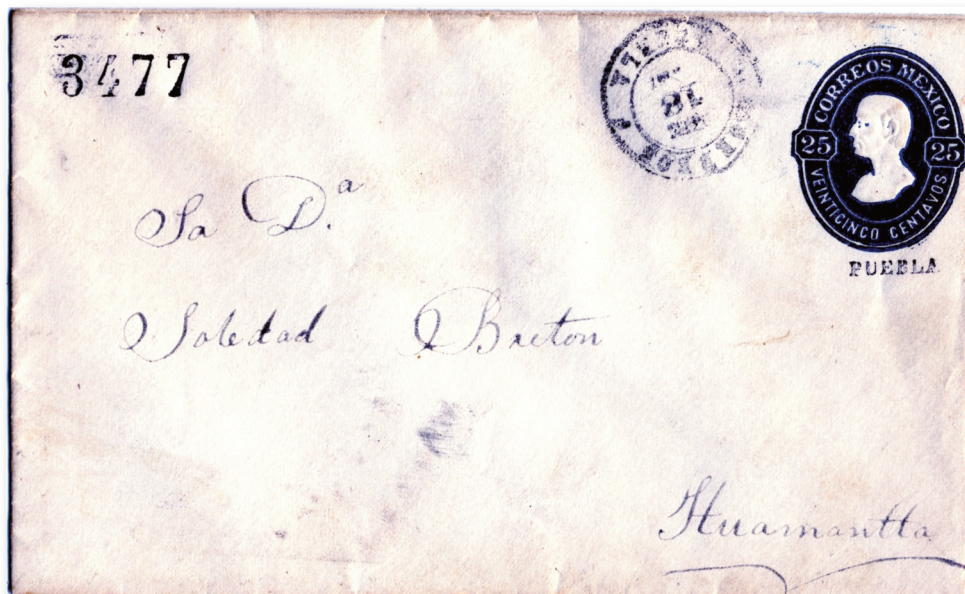 3477
CORREOS MEXICO
25 25
VEINTICINCO CENTAVOS
PUEBLA
Sa D.ª
Soledad Breton
Huamantla